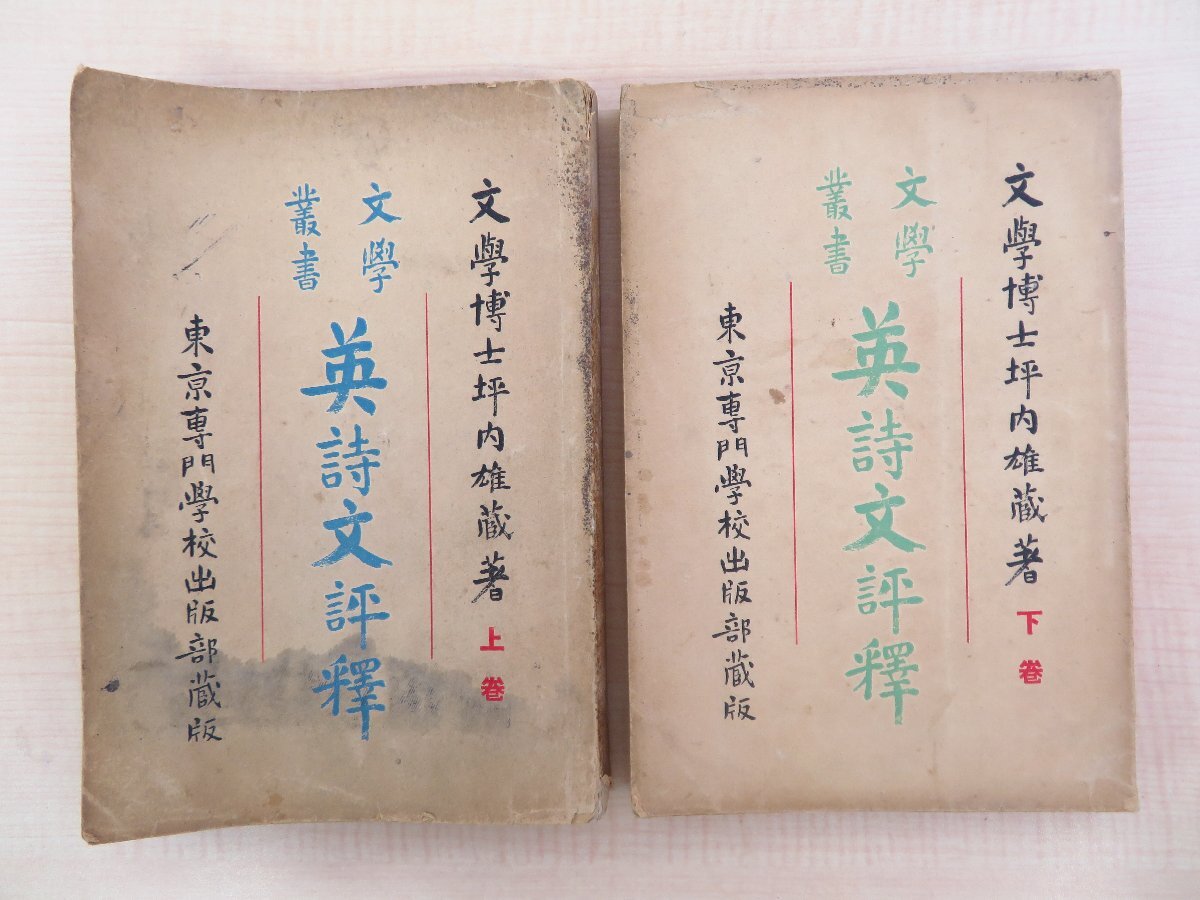 文學博士坪内雄藏著
上卷
文學
叢書
英詩文評釋
東京專門學校出版部藏版
文學博士坪内雄藏著
下卷
文學
叢書
英詩文評釋
東京專門學校出版部藏版